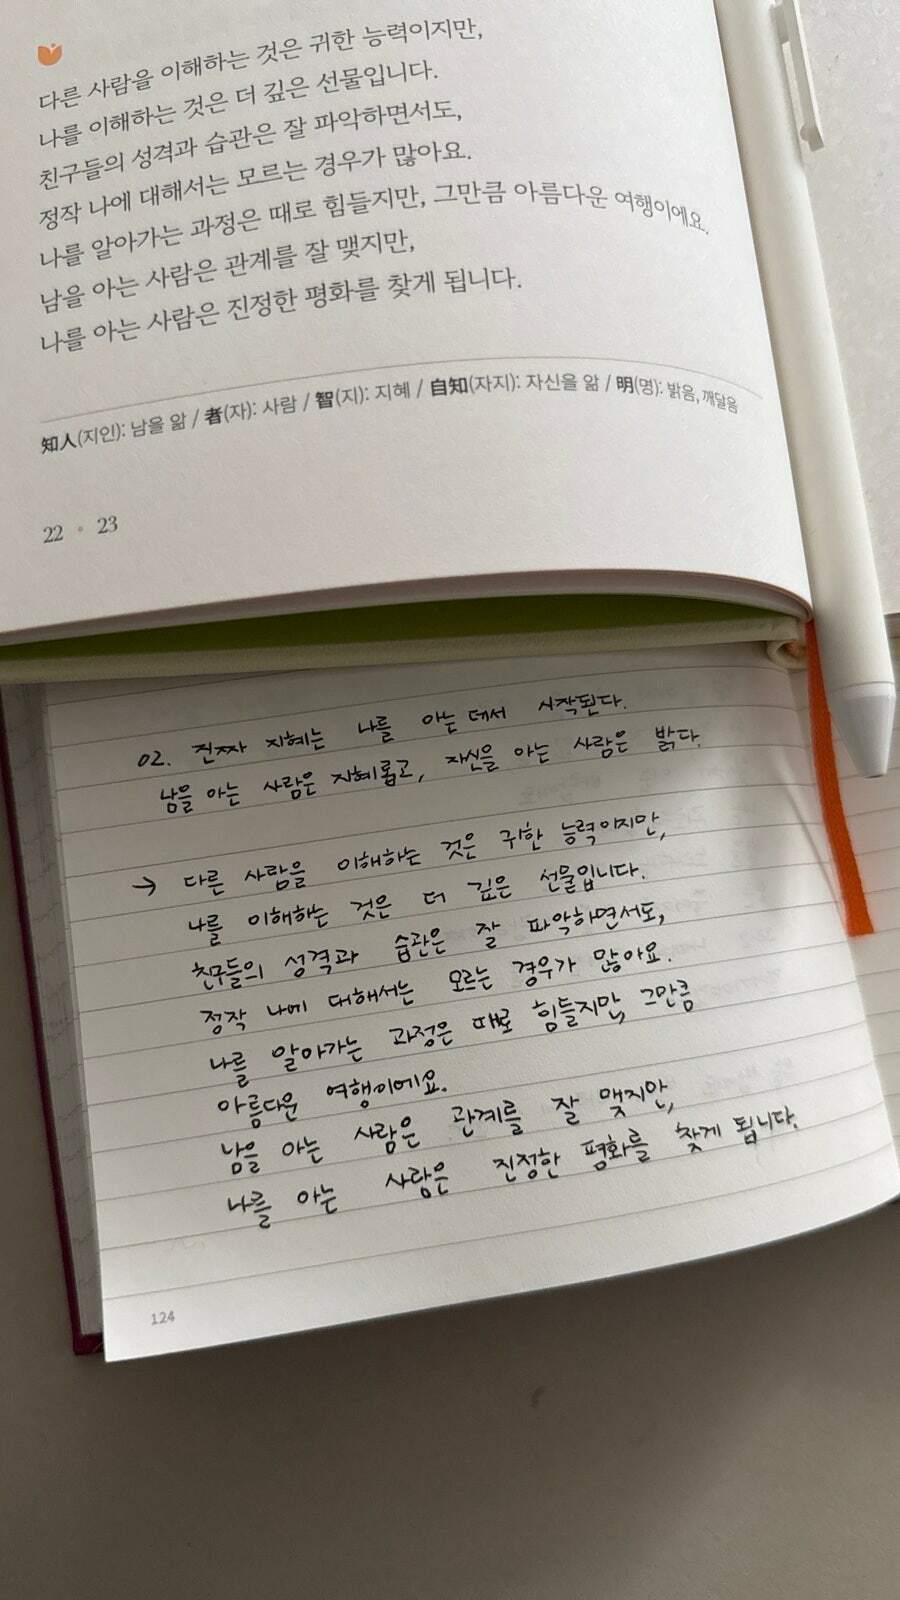 다른 사람을 이해하는 것은 귀한 능력이지만,
나를 이해하는 것은 더 깊은 선물입니다.
친구들의 성격과 습관은 잘 파악하면서도,
정작 나에 대해서는 모르는 경우가 많아요.
나를 알아가는 과정은 때로 힘들지만, 그만큼 아름다운 여행이에요.
남을 아는 사람은 관계를 잘 맺지만,
나를 아는 사람은 진정한 평화를 찾게 됩니다.
知人(지인): 남을 앎 / 者(자): 사람 / 智(지): 지혜 / 自知(자지): 자신을 앎 / 明(명): 밝음, 깨달음
22 • 23
02. 진짜 지혜는 나를 아는 데서 시작된다.
남을 아는 사람은 지혜롭고, 자신을 아는 사람은 밝다.
→ 다른 사람을 이해하는 것은 귀한 능력이지만,
나를 이해하는 것은 더 깊은 선물입니다.
친구들의 성격과 습관은 잘 파악하면서도,
정작 나에 대해서는 모르는 경우가 많아요.
나를 알아가는 과정은 때로 힘들지만, 그만큼
아름다운 여행이에요.
남을 아는 사람은 관계를 잘 맺지만,
나를 아는 사람은 진정한 평화를 찾게 됩니다.
124